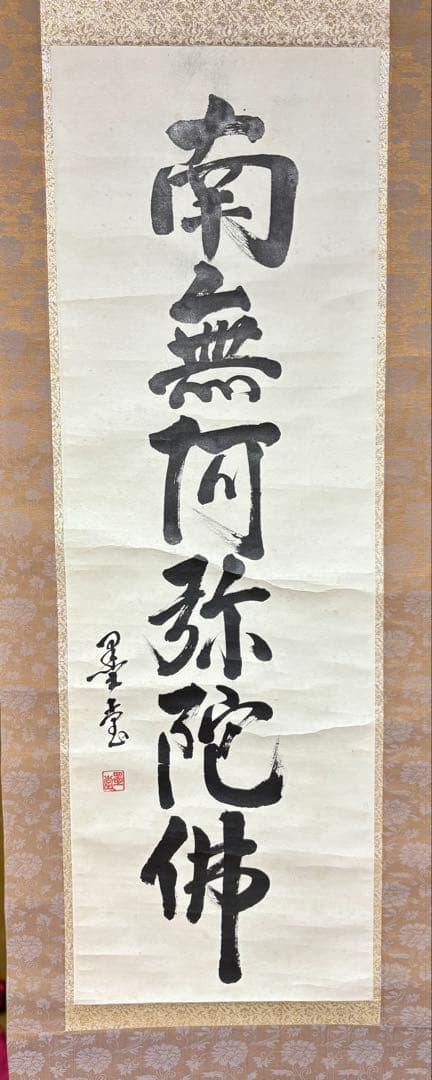 南無阿弥陀佛
墨堂